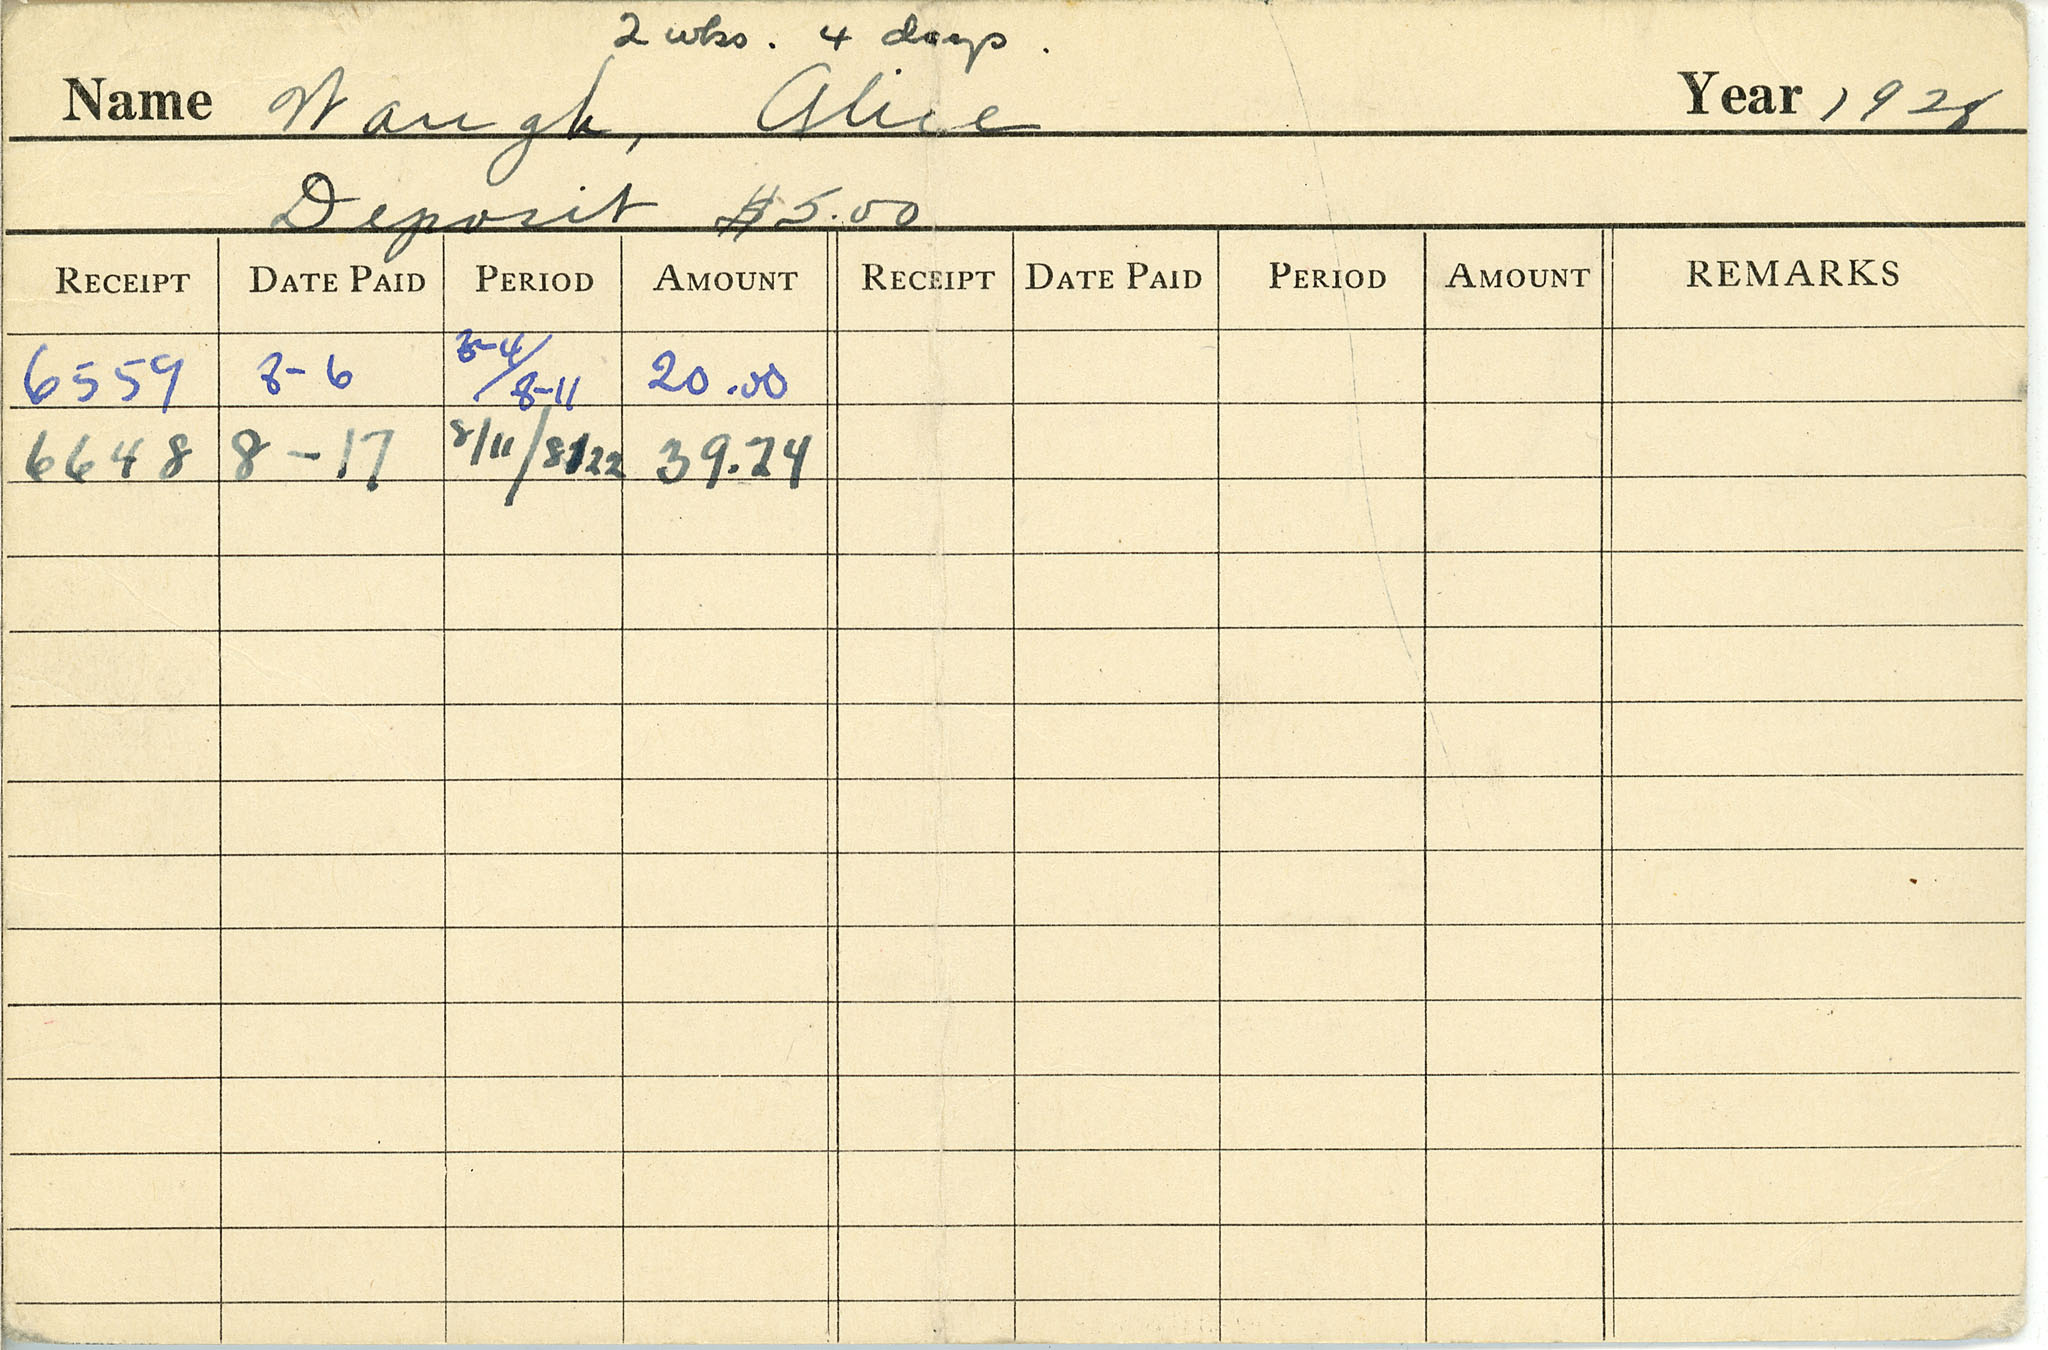 2 wks. 4 days.
Name Waugh, Alice Year 1928
Deposit $5.00
RECEIPT DATE PAID PERIOD AMOUNT RECEIPT DATE PAID PERIOD AMOUNT REMARKS
6559 8-6 8-4/8-11 20.00
6648 8-17 8/11/8/22 39.24